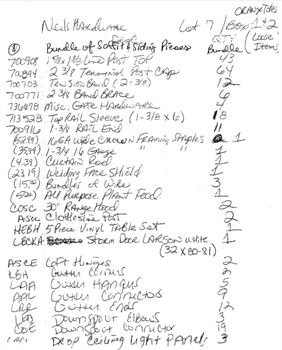 ORANGE Totes
Neill Hardware Lot 7 / Box 1 & 2
Dept
QTY (Loose Items)
① Bundle of Soffit & Siding Pieces Bundle
700908 1 5/8 x 1 3/8 Loop Post Top 43
70894 2 3/8 Terminal Post Cap 64
700703 Tension Band (2-3/8) 12
700771 2 3/8 Brace Band 6
736478 Misc. Gate Hardware 4
713528 Top Rail Sleeve (1-3/8 x 6) 18
700916 1-3/8 Rail End 11
(5299) 16GA Wide Crown Framing Staples 1
(3599) 1-3/4 16 Gauge 1
(4.39) Curtain Rod 1
(23.19) Welding Face Shield 1
Bundles of Wire 3
All Purpose Plant Food 1
COSC 30" Range Hood 2
ASCC Clothesline Post 2
HEBH 5 Piece Vinyl Table Set 1
LECKA Storm Door LARSON White 1
(32 x 80-81)
ASCE Loft Hinges 2
LBH Gutter Elbows 2
LAA Gutter Hangers 5
APL Gutter Connectors 9
LRR Gutter Ends 12
LBD Downspout Elbows 3
COE Downspout Connector 19
Drop Ceiling Light Panels 3